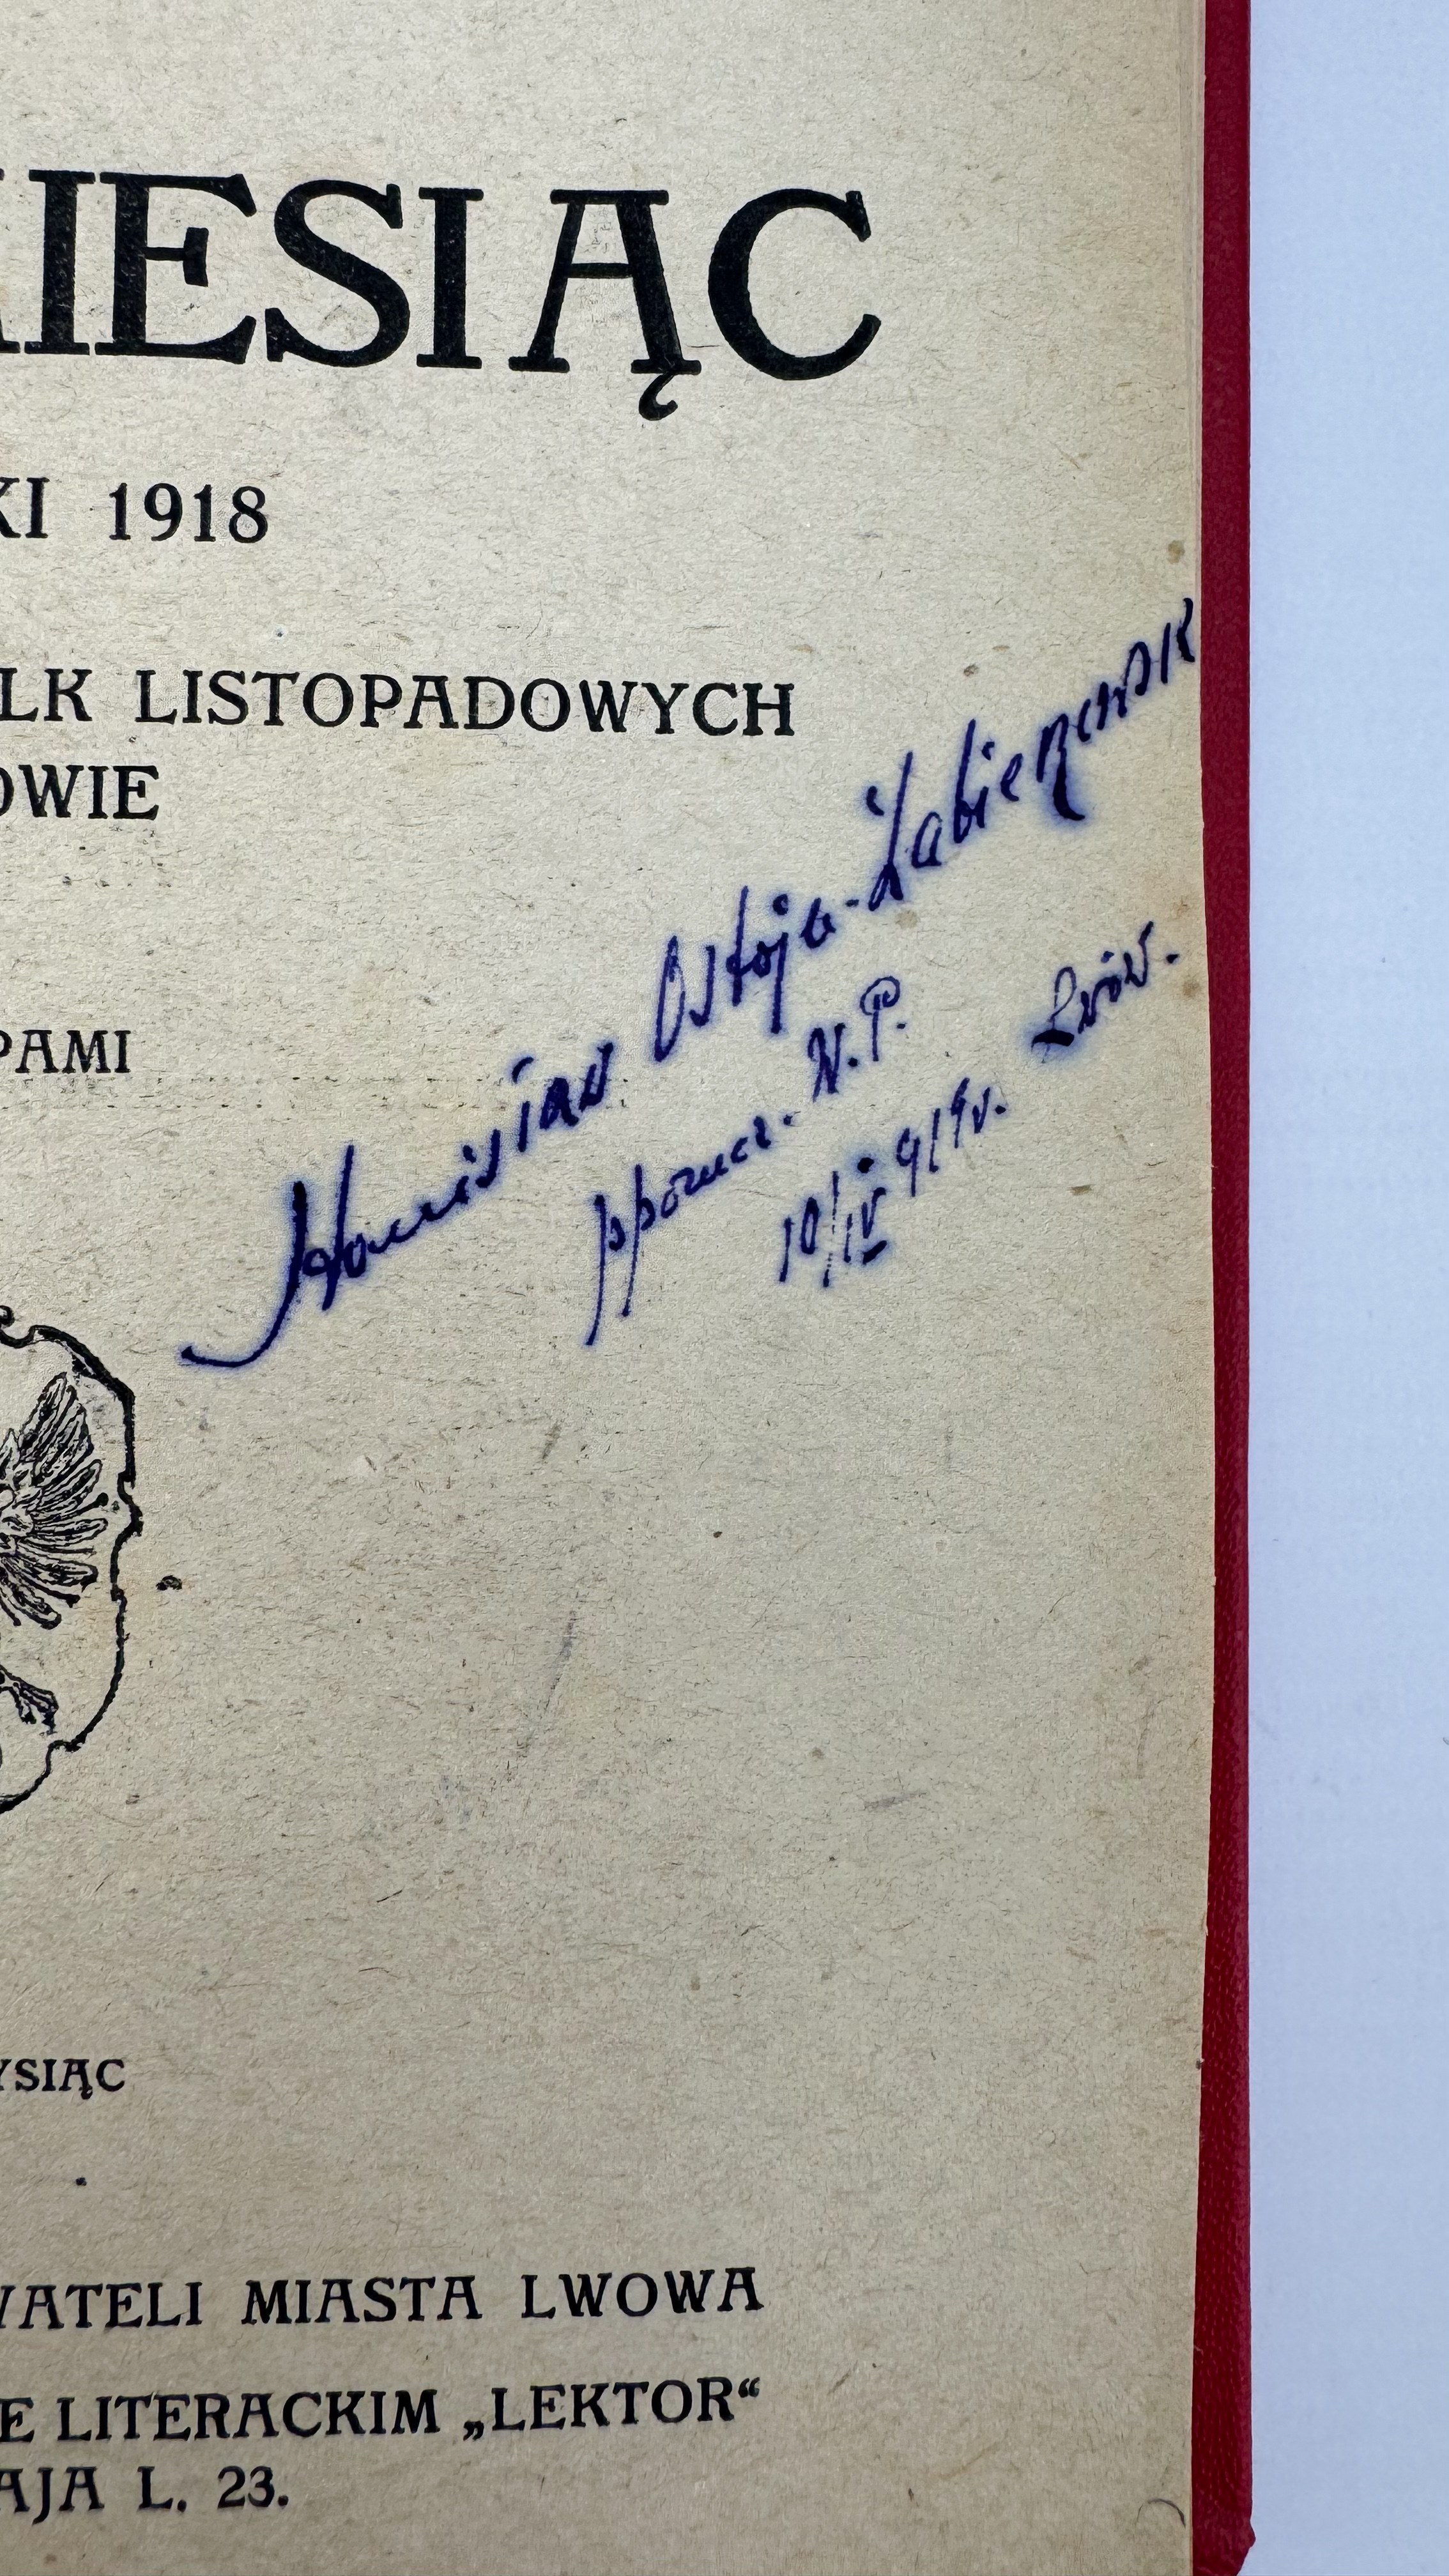 MIESIĄC
KI 1918
LK LISTOPADOWYCH
OWIE
PAMI
Ostoja-Żabierzewsk
pporucz. W.P.
10/IV 919r. Lwów.
YSIĄC
WATELI MIASTA LWOWA
E LITERACKIM „LEKTOR“
AJA L. 23.